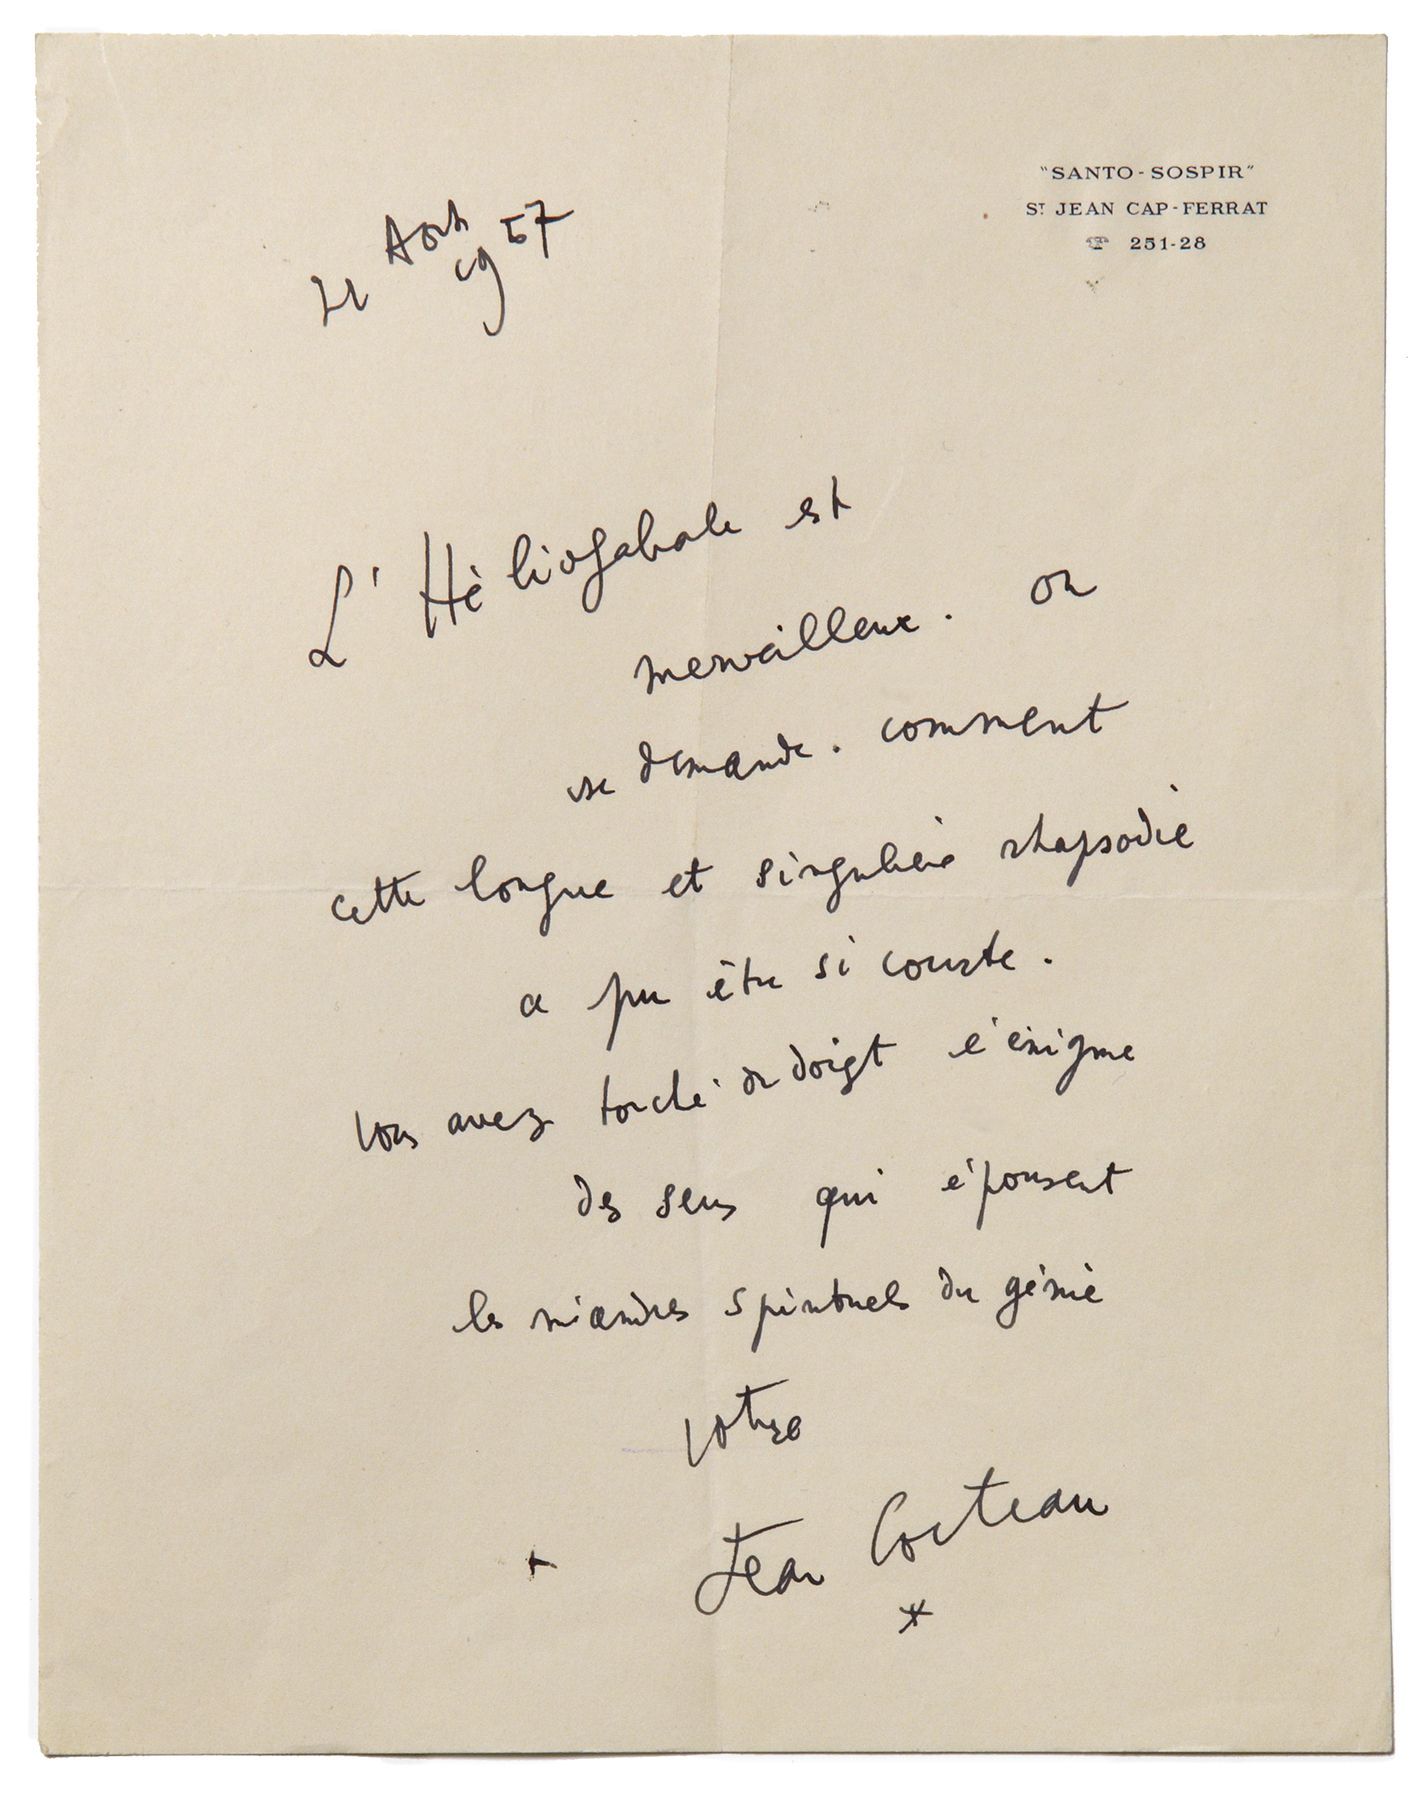 "SANTO-SOSPIR"
ST JEAN CAP-FERRAT
☎ 251-28
21 Août 1957
L'Héliogabale est
merveilleux. on
se demande. comment
cette longue et singulière rhapsodie
a pu être si courte.
Vous avez touché du doigt l'énigme
des sens qui épousent
les méandres spirituels du génie
votre
Jean Cocteau
*